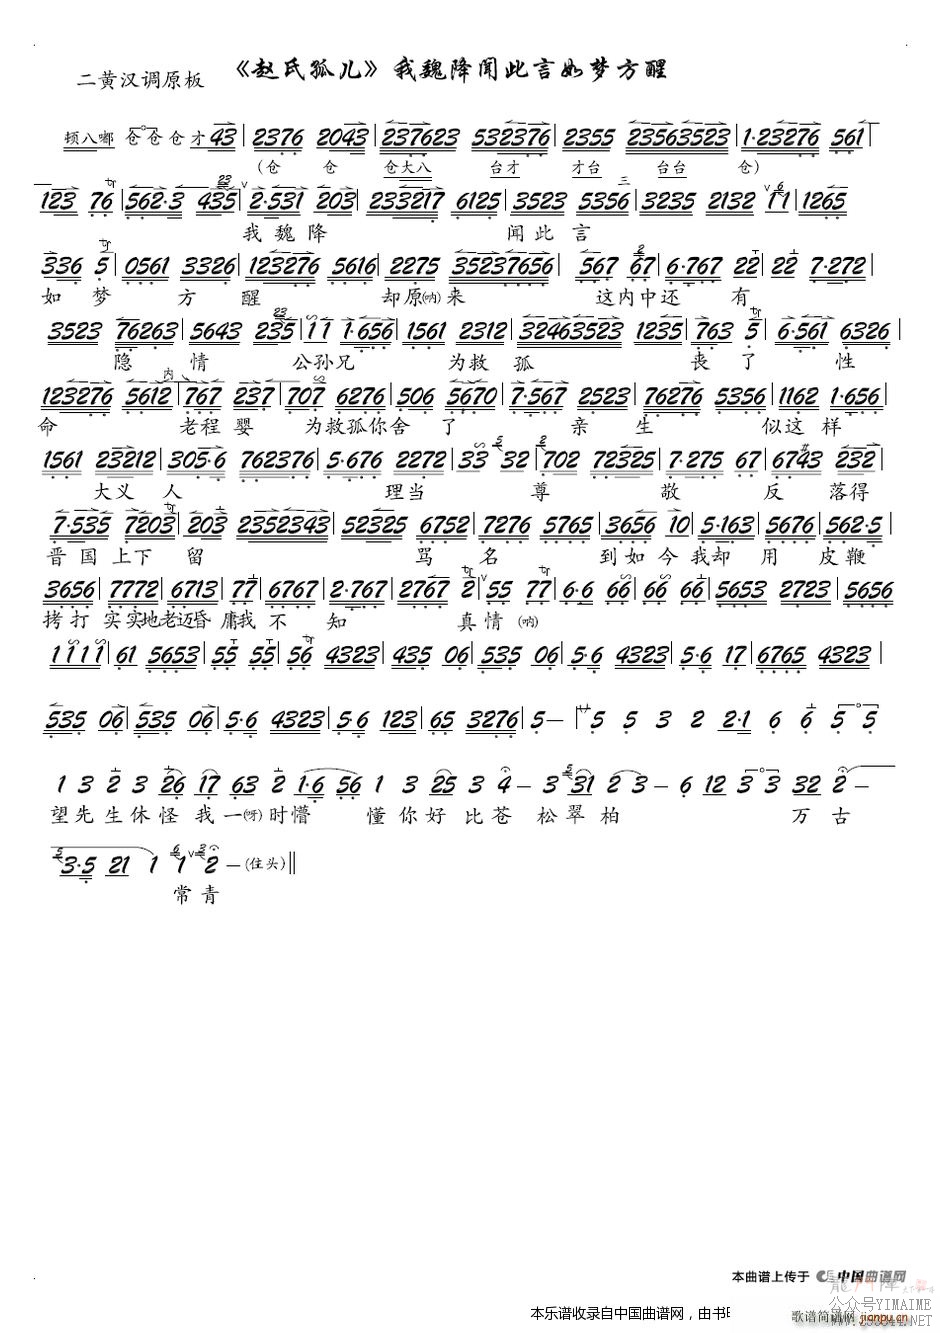 《赵氏孤儿》我魏降闻此言如梦方醒
二黄汉调原板
顿八嘟 仓仓仓才 43 | 2376 2043 | 237623 532376 | 2355 23563523 | 1·23276 561 |
(仓 仓 仓大八 台才 才台 台台 仓)
123 76 | 562·3 435 | 2·531 203 | 233217 6125 | 3523 5356 | 3235 2132 11 | 1265
我魏降 闻此言
336 5 | 0561 3326 | 123276 5616 | 2275 35237656 | 567 67 | 6·767 22 | 22 7·272 |
如梦 方醒 却原(呐)来 这内中还有
3523 76263 | 5643 235 | 11 1·656 | 1561 2312 | 32463523 1235 | 763 5 | 6·561 6326 |
隐情 公孙兄 为救孤 丧了性
123276 5612 | 767 237 | 707 6276 | 506 5670 | 7·567 2523 | 76276 5356 | 1162 1·656 |
命 老程婴 为救孤你舍了 亲生 似这样
1561 23212 | 305·6 762376 | 5·676 2272 | 33 32 | 702 72325 | 7·275 67 | 6743 232 |
大义人 理当 尊敬 反落得
7·535 7203 | 203 2352343 | 52325 6752 | 7276 5765 | 3656 10 | 5·163 | 5676 | 562·5 |
晋国上下留 骂名 到如今我却用皮鞭
3656 | 7772 | 6713 | 77 | 6767 | 2·767 | 2767 2 | 55 77 | 6·6 66 | 66 66 | 5653 2723 | 5656
拷打实实地老迈昏庸我不知 真情(呐)
1111 | 61 5653 | 55 55 | 56 4323 | 435 06 | 535 06 | 5·6 4323 | 5·6 17 | 6765 4323 |
535 06 | 535 06 | 5·6 4323 | 5·6 123 | 65 3276 | 5— | 5 5 3 2 2·1 6 6 5 5
1 3 2 3 26 17 63 2 1·6 56 1 3 25 3 4— 3 31 2 3— 6 12 3 3 32 2—
望先生休怪我一(呀)时懵懂你好比苍松翠柏 万古
3·5 21 1 1 2 —(住头)‖
常青
本曲谱上传于 中国曲谱网
本乐谱收录自中国曲谱网，由书
歌谱简谱网 jianpu.cn
公众号YIMAIME